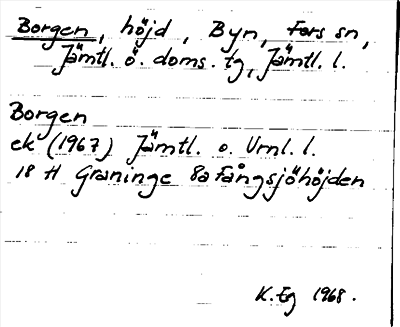 Borgen, höjd, Byn, Fors sn,
Jämtl. ö. doms. tg, Jämtl. l.
Borgen
ek (1967) Jämtl. o. Vrnl. l.
18 H Graninge 8a Fångsjöhöjden
K. Eg 1968.